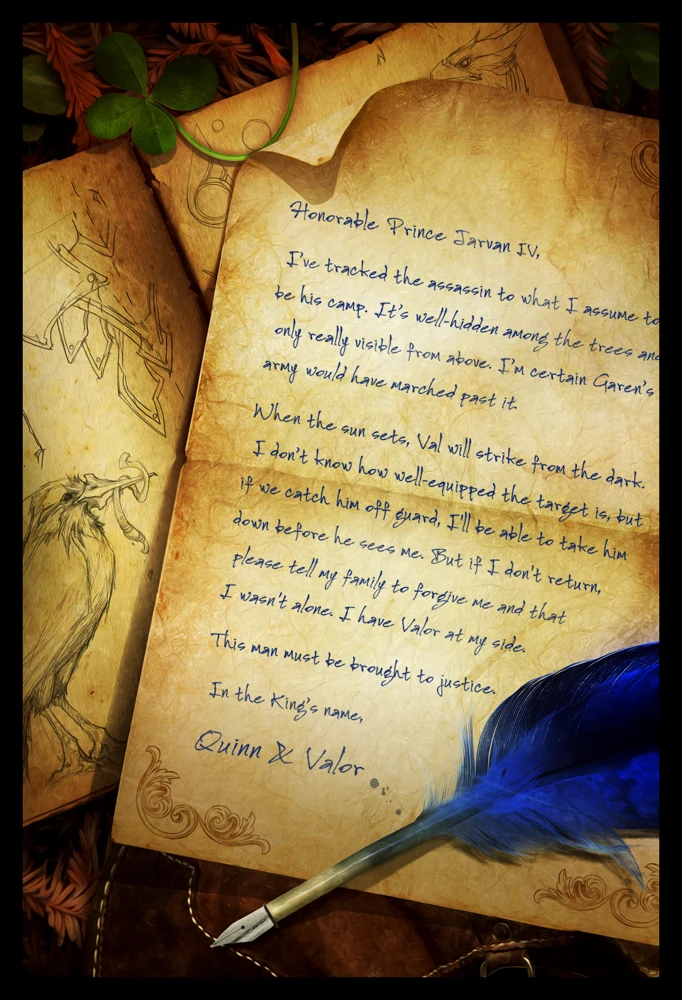 Honorable Prince Jarvan IV,
I've tracked the assassin to what I assume to
be his camp. It's well-hidden among the trees and
only really visible from above. I'm certain Garen's
army would have marched past it.
When the sun sets, Val will strike from the dark.
I don't know how well-equipped the target is, but
if we catch him off guard, I'll be able to take him
down before he sees me. But if I don't return,
please tell my family to forgive me and that
I wasn't alone. I have Valor at my side.
This man must be brought to justice.
In the King's name,
Quinn & Valor